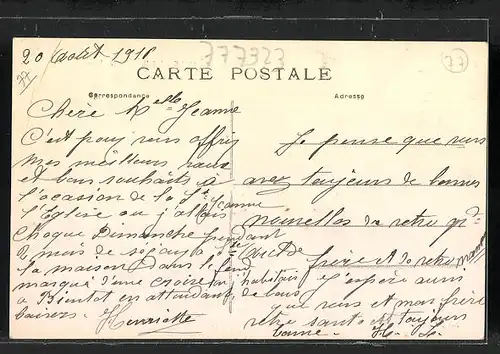 20 Août 1918
777323
77
77
CARTE POSTALE
Correspondance
Adresse
Chère Melle Jeanne
C'est pour vous offrir
mes meilleurs vœux
et bons souhaits à
l'occasion de la Ste Jeanne
l'Eglise ou j'allais
chaque Dimanche pendant
mois de séjour à
la maison dans le fond
marqué d'une croix
a Bientot en attendant de vous
baisers. Henriette
Je pense que vous
avez toujours de bonnes
nouvelles de votre
frère et de votre
J'espère aussi
que vous et mon frère
votre santé est toujours
bonne. H.